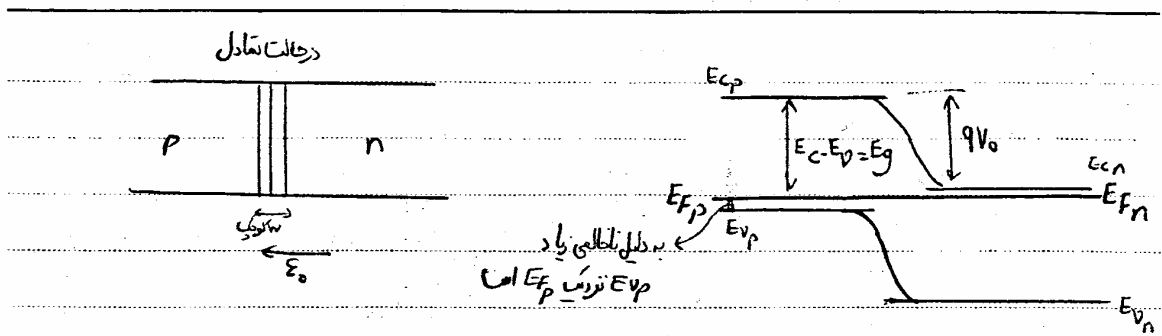 درحالت تعادل
p n
W کوچک
ε₀
E_Cp
E_C-E_v=E_g
qV₀
E_Cn
E_Fp
E_Fn
E_vp
به دلیل ناخالصی زیاد
E_vp نزدیک E_Fp است
E_vn